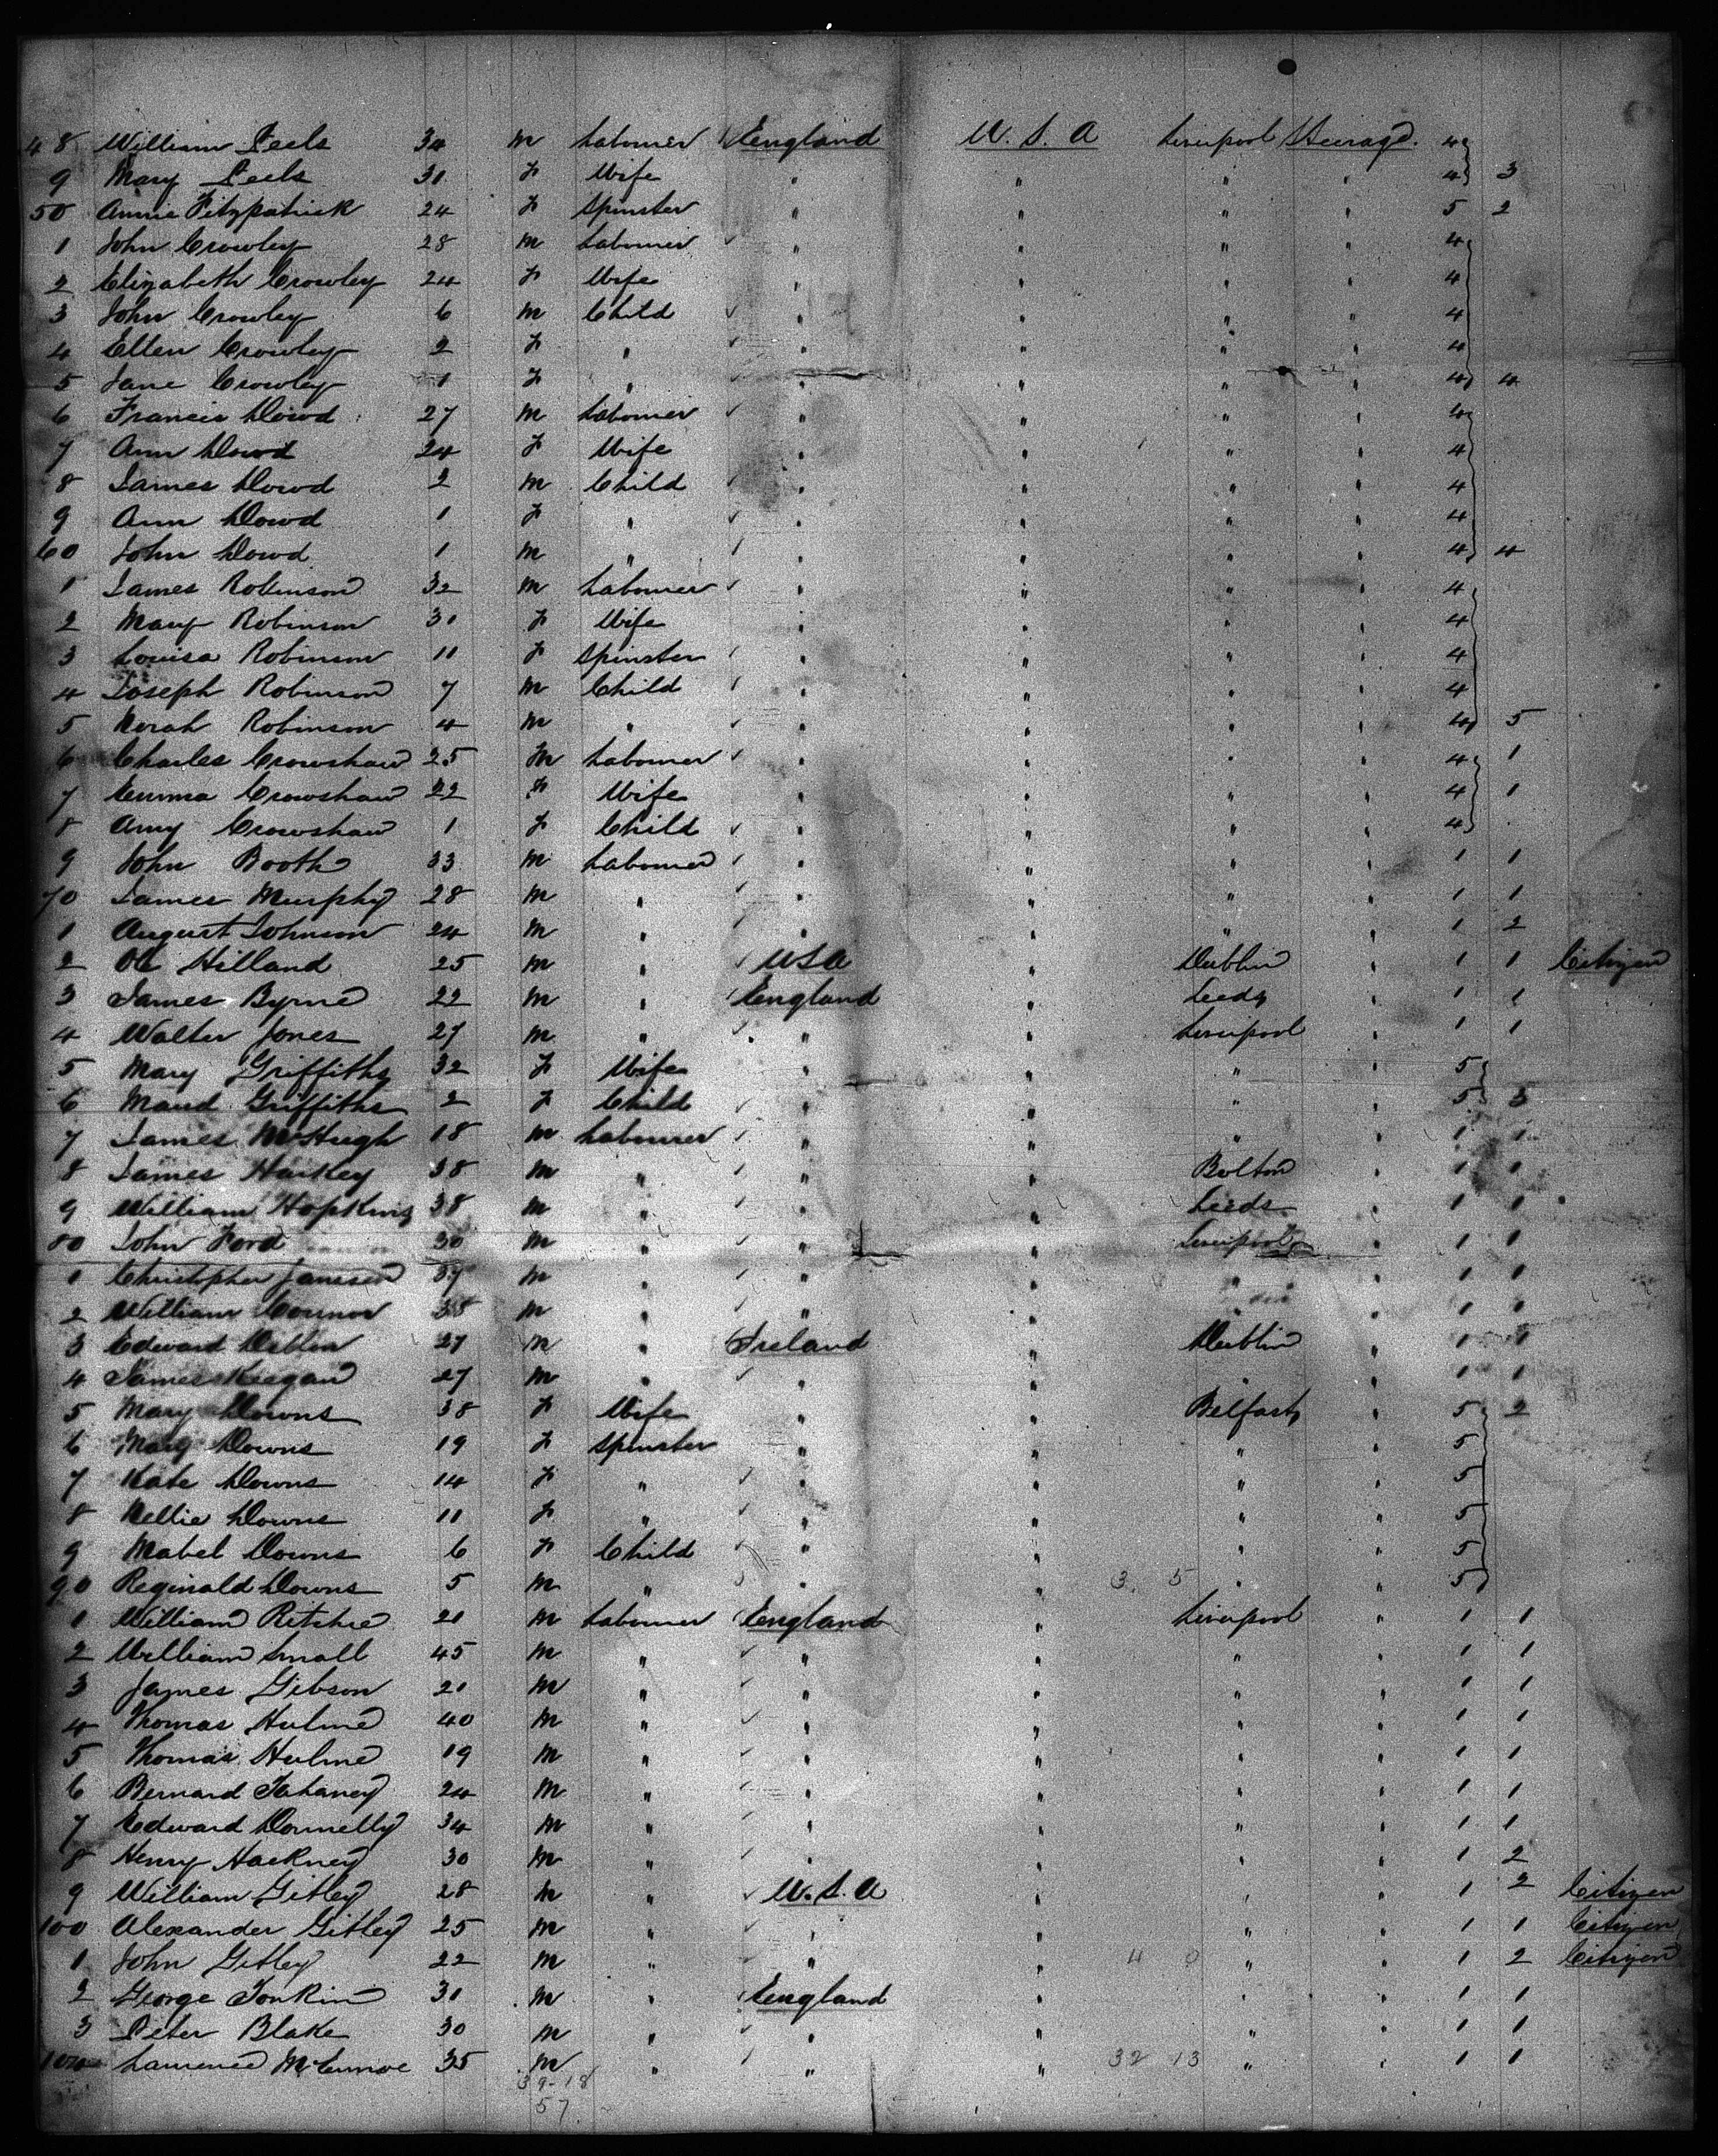 48 William Peels 34 m Labourer England U. S. A Liverpool Steerage. 4
9 Mary Peels 31 f Wife " " " " 4 3
50 Annie Fitzpatrick 24 f Spinster " " " " 5 2
1 John Crowley 28 m Labourer " " " " 4
2 Elizabeth Crowley 24 f Wife " " " " 4
3 John Crowley 6 m Child " " " " 4
4 Ellen Crowley 2 f " " " " " 4
5 Jane Crowley 1 f " " " " " 4 4
6 Francis Dowd 27 m Labourer " " " " 4
7 Ann Dowd 24 f Wife " " " " 4
8 James Dowd 2 m Child " " " " 4
9 Ann Dowd 1 f " " " " " 4
60 John Dowd 1 m " " " " " 4 4
1 James Robinson 32 m Labourer " " " " 4
2 Mary Robinson 30 f Wife " " " " 4
3 Louisa Robinson 11 f Spinster " " " " 4
4 Joseph Robinson 7 m Child " " " " 4
5 Norah Robinson 4 m " " " " " 4 5
6 Charles Crowshaw 25 m Labourer " " " " 4 1
7 Emma Crowshaw 22 f Wife " " " " 4 1
8 Amy Crowshaw 1 f Child " " " " 4
9 John Booth 33 m Labourer " " " " 1 1
70 James Murphy 28 m " " " " " 1 1
1 August Johnson 24 m " " " " " 1 2
2 Ole Hilland 25 m " USA " Dublin " 1 1 Citizen
3 James Byrne 22 m " England " Leeds " 1 1
4 Walter Jones 27 m " " " Liverpool " 1 1
5 Mary Griffiths 32 f Wife " " " " 5
6 Maud Griffiths 2 f Child " " " " 5 3
7 James McHugh 18 m Labourer " " " " 1 1
8 James Harkey 38 m " " " Bolton " 1 1
9 William Hopkins 38 m " " " Leeds " 1 1
80 John Ford 30 m " " " Liverpool " 1 1
1 Christopher Janssen 37 m " " " " " 1 1
2 William Connor 38 m " " " " " 1 1
3 Edward Dillon 27 m " Ireland " Dublin " 1 1
4 James Keegan 27 m " " " " " 1 1
5 Mary Downs 38 f Wife " " Belfast " 5 2
6 Mary Downs 19 f Spinster " " " " 5
7 Kate Downs 14 f " " " " " 5
8 Nellie Downs 11 f " " " " " 5
9 Mabel Downs 6 f Child " " " " 5
90 Reginald Downs 5 m " " " 3. 5 " " 5
1 William Ritchie 20 m Labourer England " Liverpool " 1 1
2 William Small 45 m " " " " " 1 1
3 James Gibson 20 m " " " " " 1 1
4 Thomas Hulme 40 m " " " " " 1 1
5 Thomas Hulme 19 m " " " " " 1 1
6 Bernard Tahaney 24 m " " " " " 1 1
7 Edward Donnelly 34 m " " " " " 1 1
8 Henry Hackney 30 m " " " " " 1 2
9 William Gitley 28 m " U. S. A " " " 1 2 Citizen
100 Alexander Gitley 25 m " " " " " 1 1 Citizen
1 John Gitley 22 m " " " 4 0 " " 1 2 Citizen
2 George Tonkin 31 m " England " " " 1 1
3 Peter Blake 30 m " " " " " 1 1
104 Laurence McEnroe 35 m " " " 32 13 " " 1 1
39-18
57